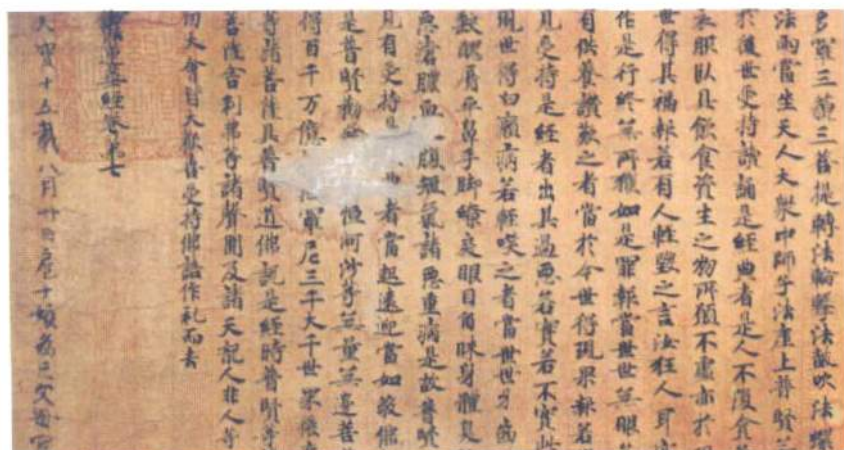 多羅三藐三菩提轉法輪擊法鼓吹法螺
法雨當坐天人大衆中師子法座上普賢若
於後世受持讀誦是經典者是人不復貪
衣服臥具飲食資生之物所願不虛亦於
世得其福報若有人輕毀之言汝狂人耳空
作是行終無所獲如是罪報當世世無眼
有供養讚歎之者當於今世得現果報若
見受持是經者出其過惡若實若不實此
現世得白癩病若輕咲之者當世世牙齒
缺醜脣平鼻手脚繚戾眼目角睞身體臭
惡瘡膿血腹短氣諸惡重病是故普賢
見有受持是典者當起遠迎當如敬佛
是普賢勸恒河沙等無量無邊菩
得百千万億陀羅尼三千大千世界微
等諸菩薩具普賢道佛說是經時普賢等
菩薩舍利弗等諸聲聞及諸天龍人非人等
切大會皆大歡喜受持佛語作礼而去
蓮華經卷第七
天寶十五載八月廿日